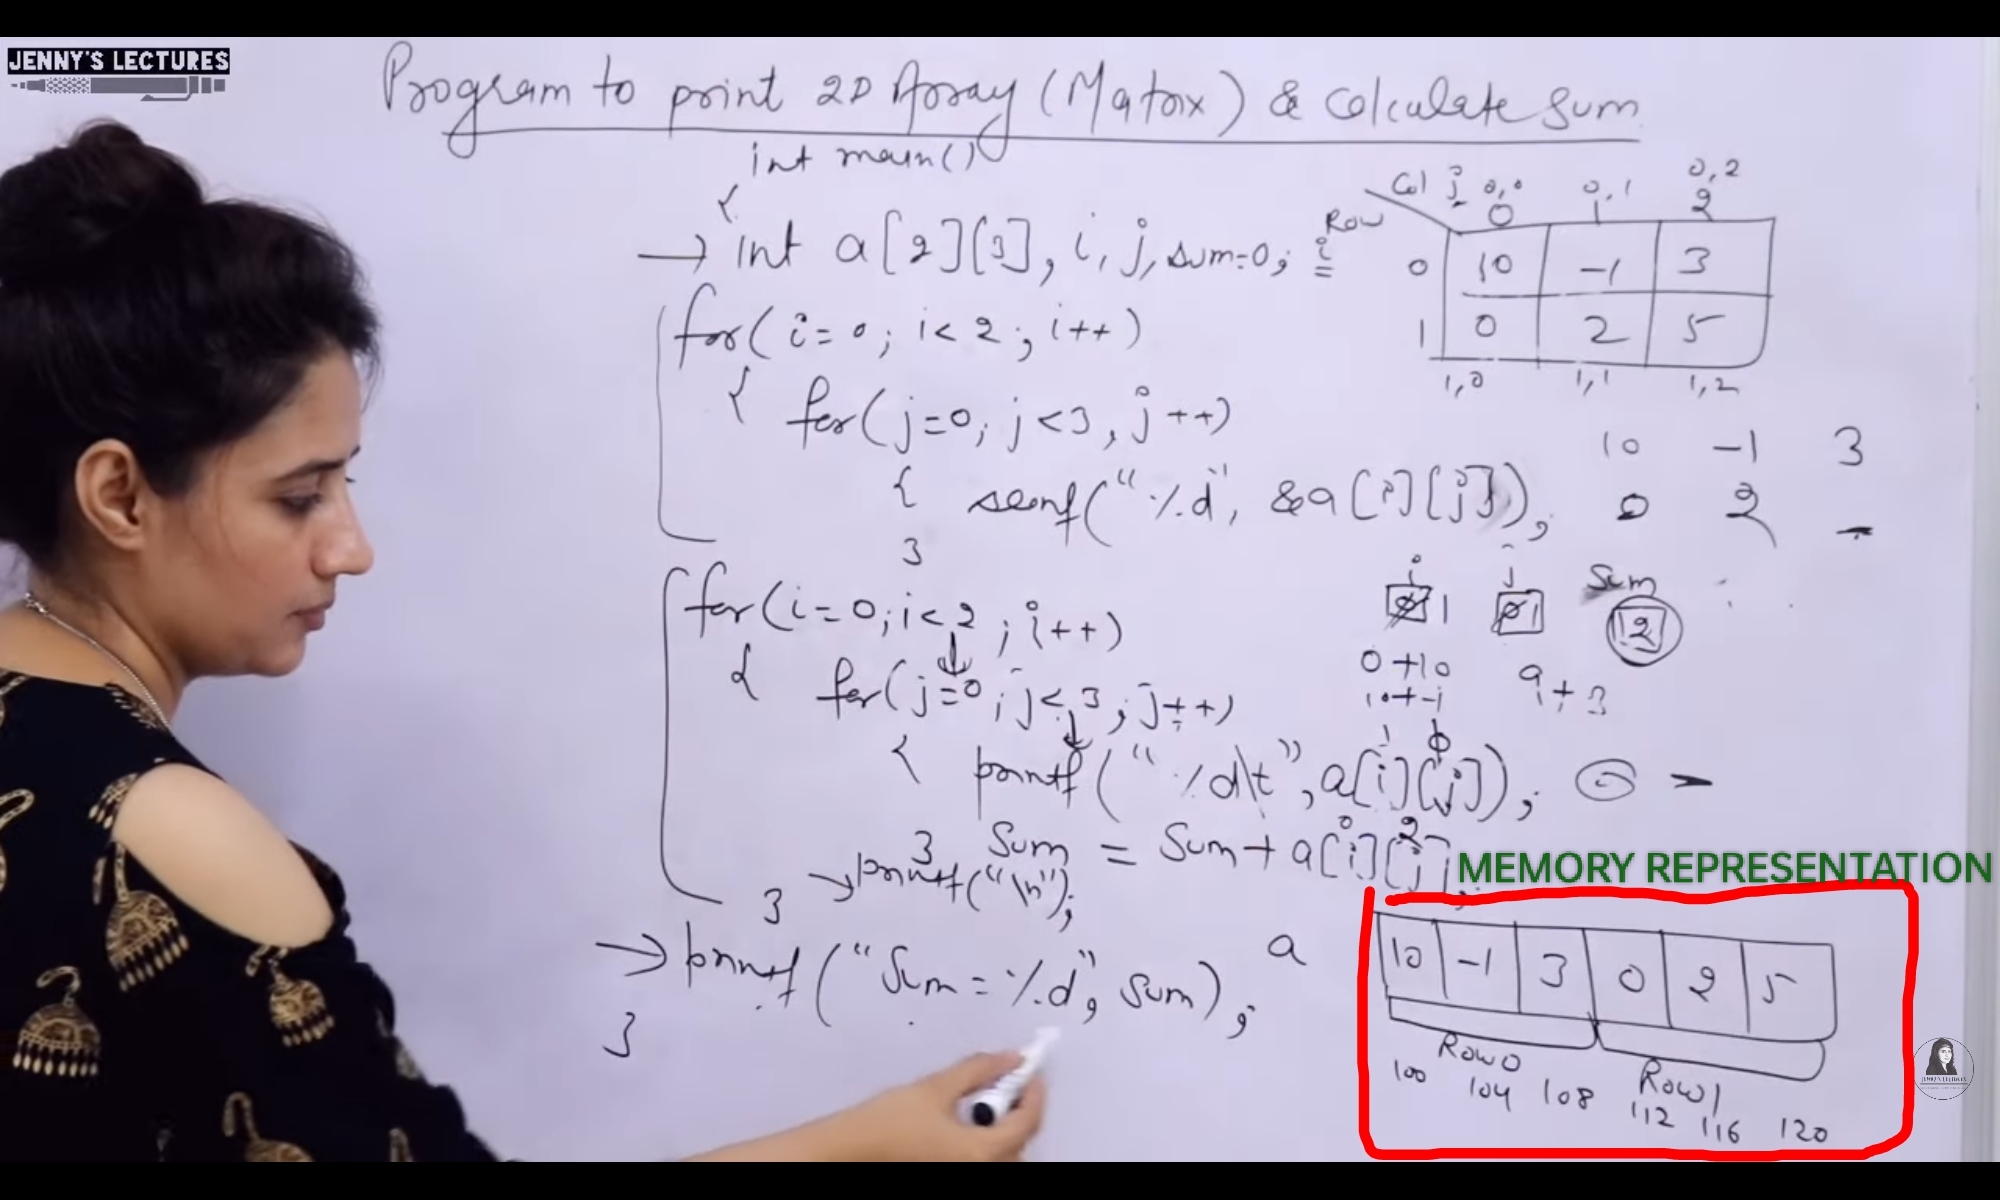 JENNY'S LECTURES
Program to print 2D Array (Matrix) & Calculate Sum
int main()
{
→ int a[2][3], i, j, sum=0;
for( i=0; i<2; i++)
{ for(j=0; j<3, j++)
{ scanf("%d", &a[i][j]);
}
for(i=0; i<2; i++)
{ for(j=0; j<3; j++)
{ printf("%d\t", a[i][j]);
} Sum = Sum + a[i][j];
→ printf("\n");
}
→ printf("Sum = %d", sum);
}
Col j 0,0 0,1 0,2
Row 0 1 2
i 0 10 -1 3
1 0 2 5
1,0 1,1 1,2
10 -1 3
0 2 -
i j Sum
0 1 0 1 12
0+10 9+3
10+-1
1 0
0 2
MEMORY REPRESENTATION
a 10 -1 3 0 2 5
Row 0 Row 1
100 104 108 112 116 120
JENNY'S LECTURES